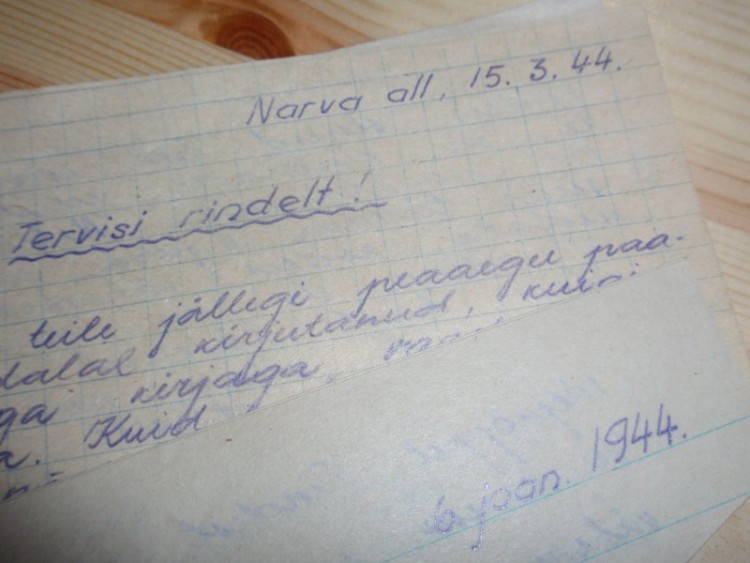 Narva all, 15. 3. 44.
Tervisi rindelt!
teile jällegi peaaegu paa-
dalat kirjutanud, kuigi
ga kirjaga,
a. Kuid
6. jaan. 1944.